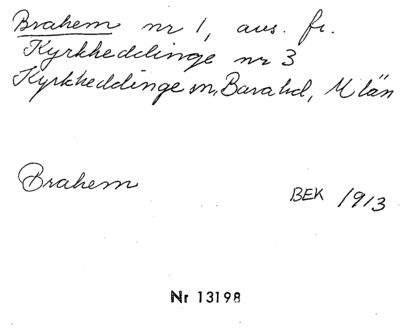 Brahem nr 1, avs. fr.
Kyrkheddinge nr 3
Kyrkheddinge sn, Bara hd, M län
Brahem
BEK 1913
Nr 13198